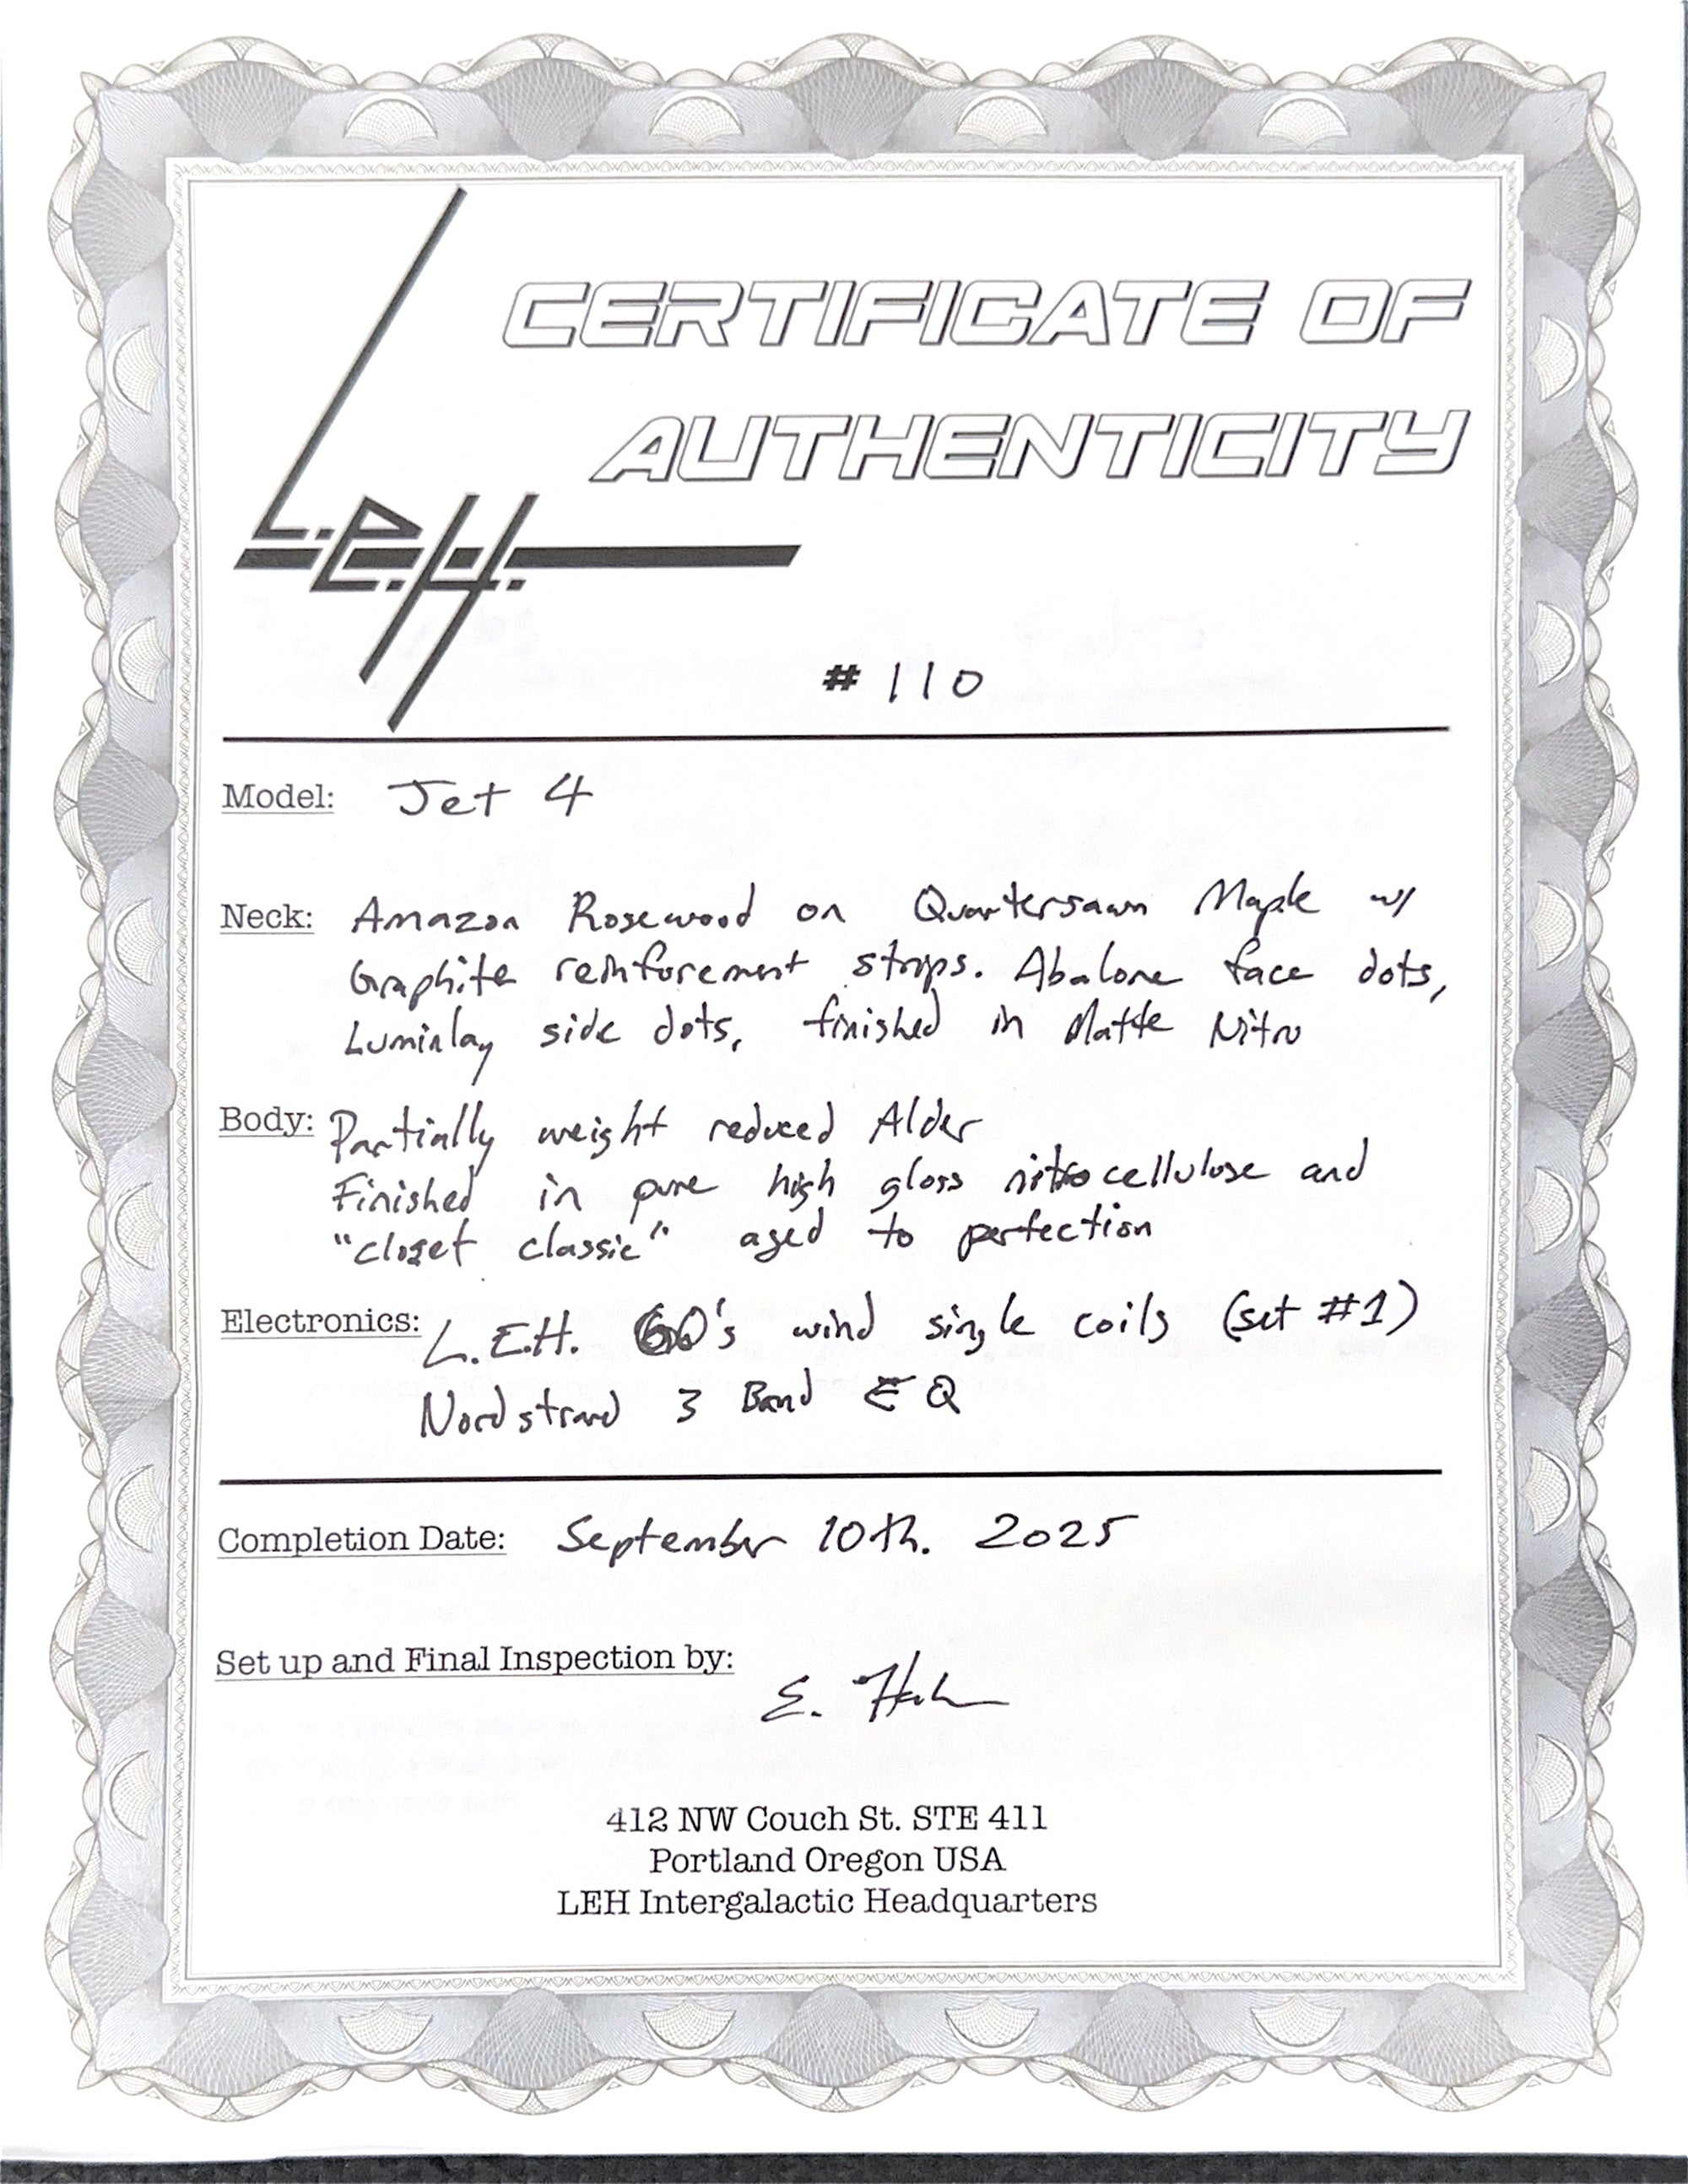 CERTIFICATE OF
AUTHENTICITY
L.E.H.
#110
Model: Jet 4
Neck: Amazon Rosewood on Quartersawn Maple w/
Graphite reinforement strips. Abalone face dots,
Luminlay side dots, finished in Matte Nitro
Body: Partially weight reduced Alder
Finished in pure high gloss nitrocellulose and
"closet classic" aged to perfection
Electronics: L.E.H. 60's wind single coils (set #1)
Nordstrand 3 Band EQ
Completion Date: September 10th. 2025
Set up and Final Inspection by: E. Hah
412 NW Couch St. STE 411
Portland Oregon USA
LEH Intergalactic Headquarters